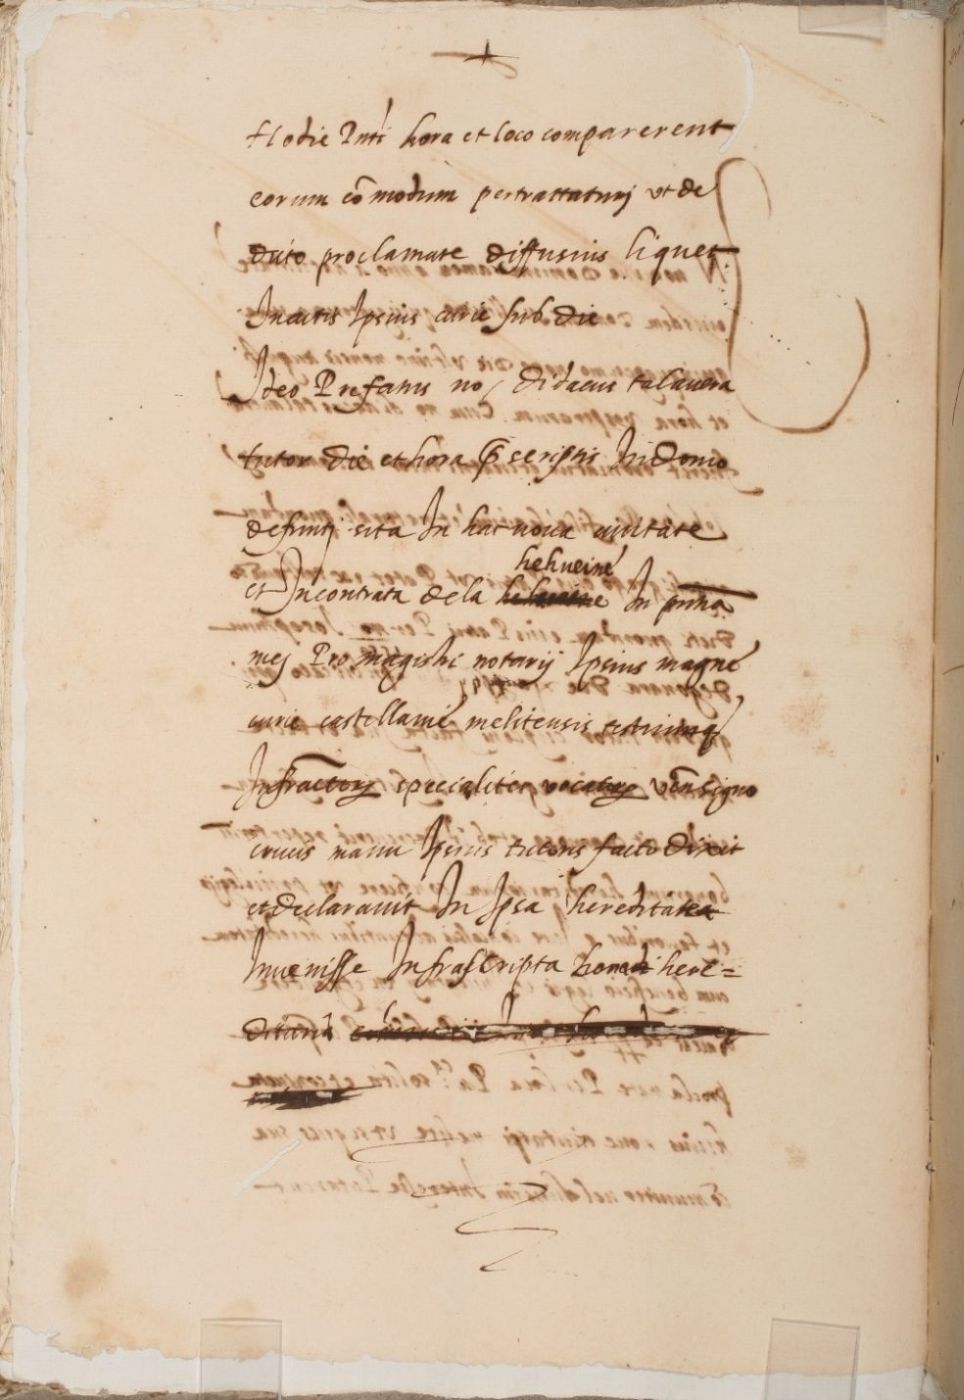 Hodie Pnti hora et loco comparerent
eorum cōmodum pertrattaturj vt de
dicto proclamate diffusius liquet
In actis Ipsius curie sub die
Ideo Prefatus no/ Didacus talavera
tutor die et hora p̄scriptis In domo
defuntj sita In hac noua ciuitate
heħueine
et In contrata dela In pn̄tia
mej Pro magistri notarij Ipsius magne
curie castellanie melitensis testiumq
Infractorum specialiter vocatorum v̄e n signo
crucis manu Ipsius tutoris facto dixit
et declarauit In Ipsa hereditate
Inuenisse Infrascripta bona here=
ditaria